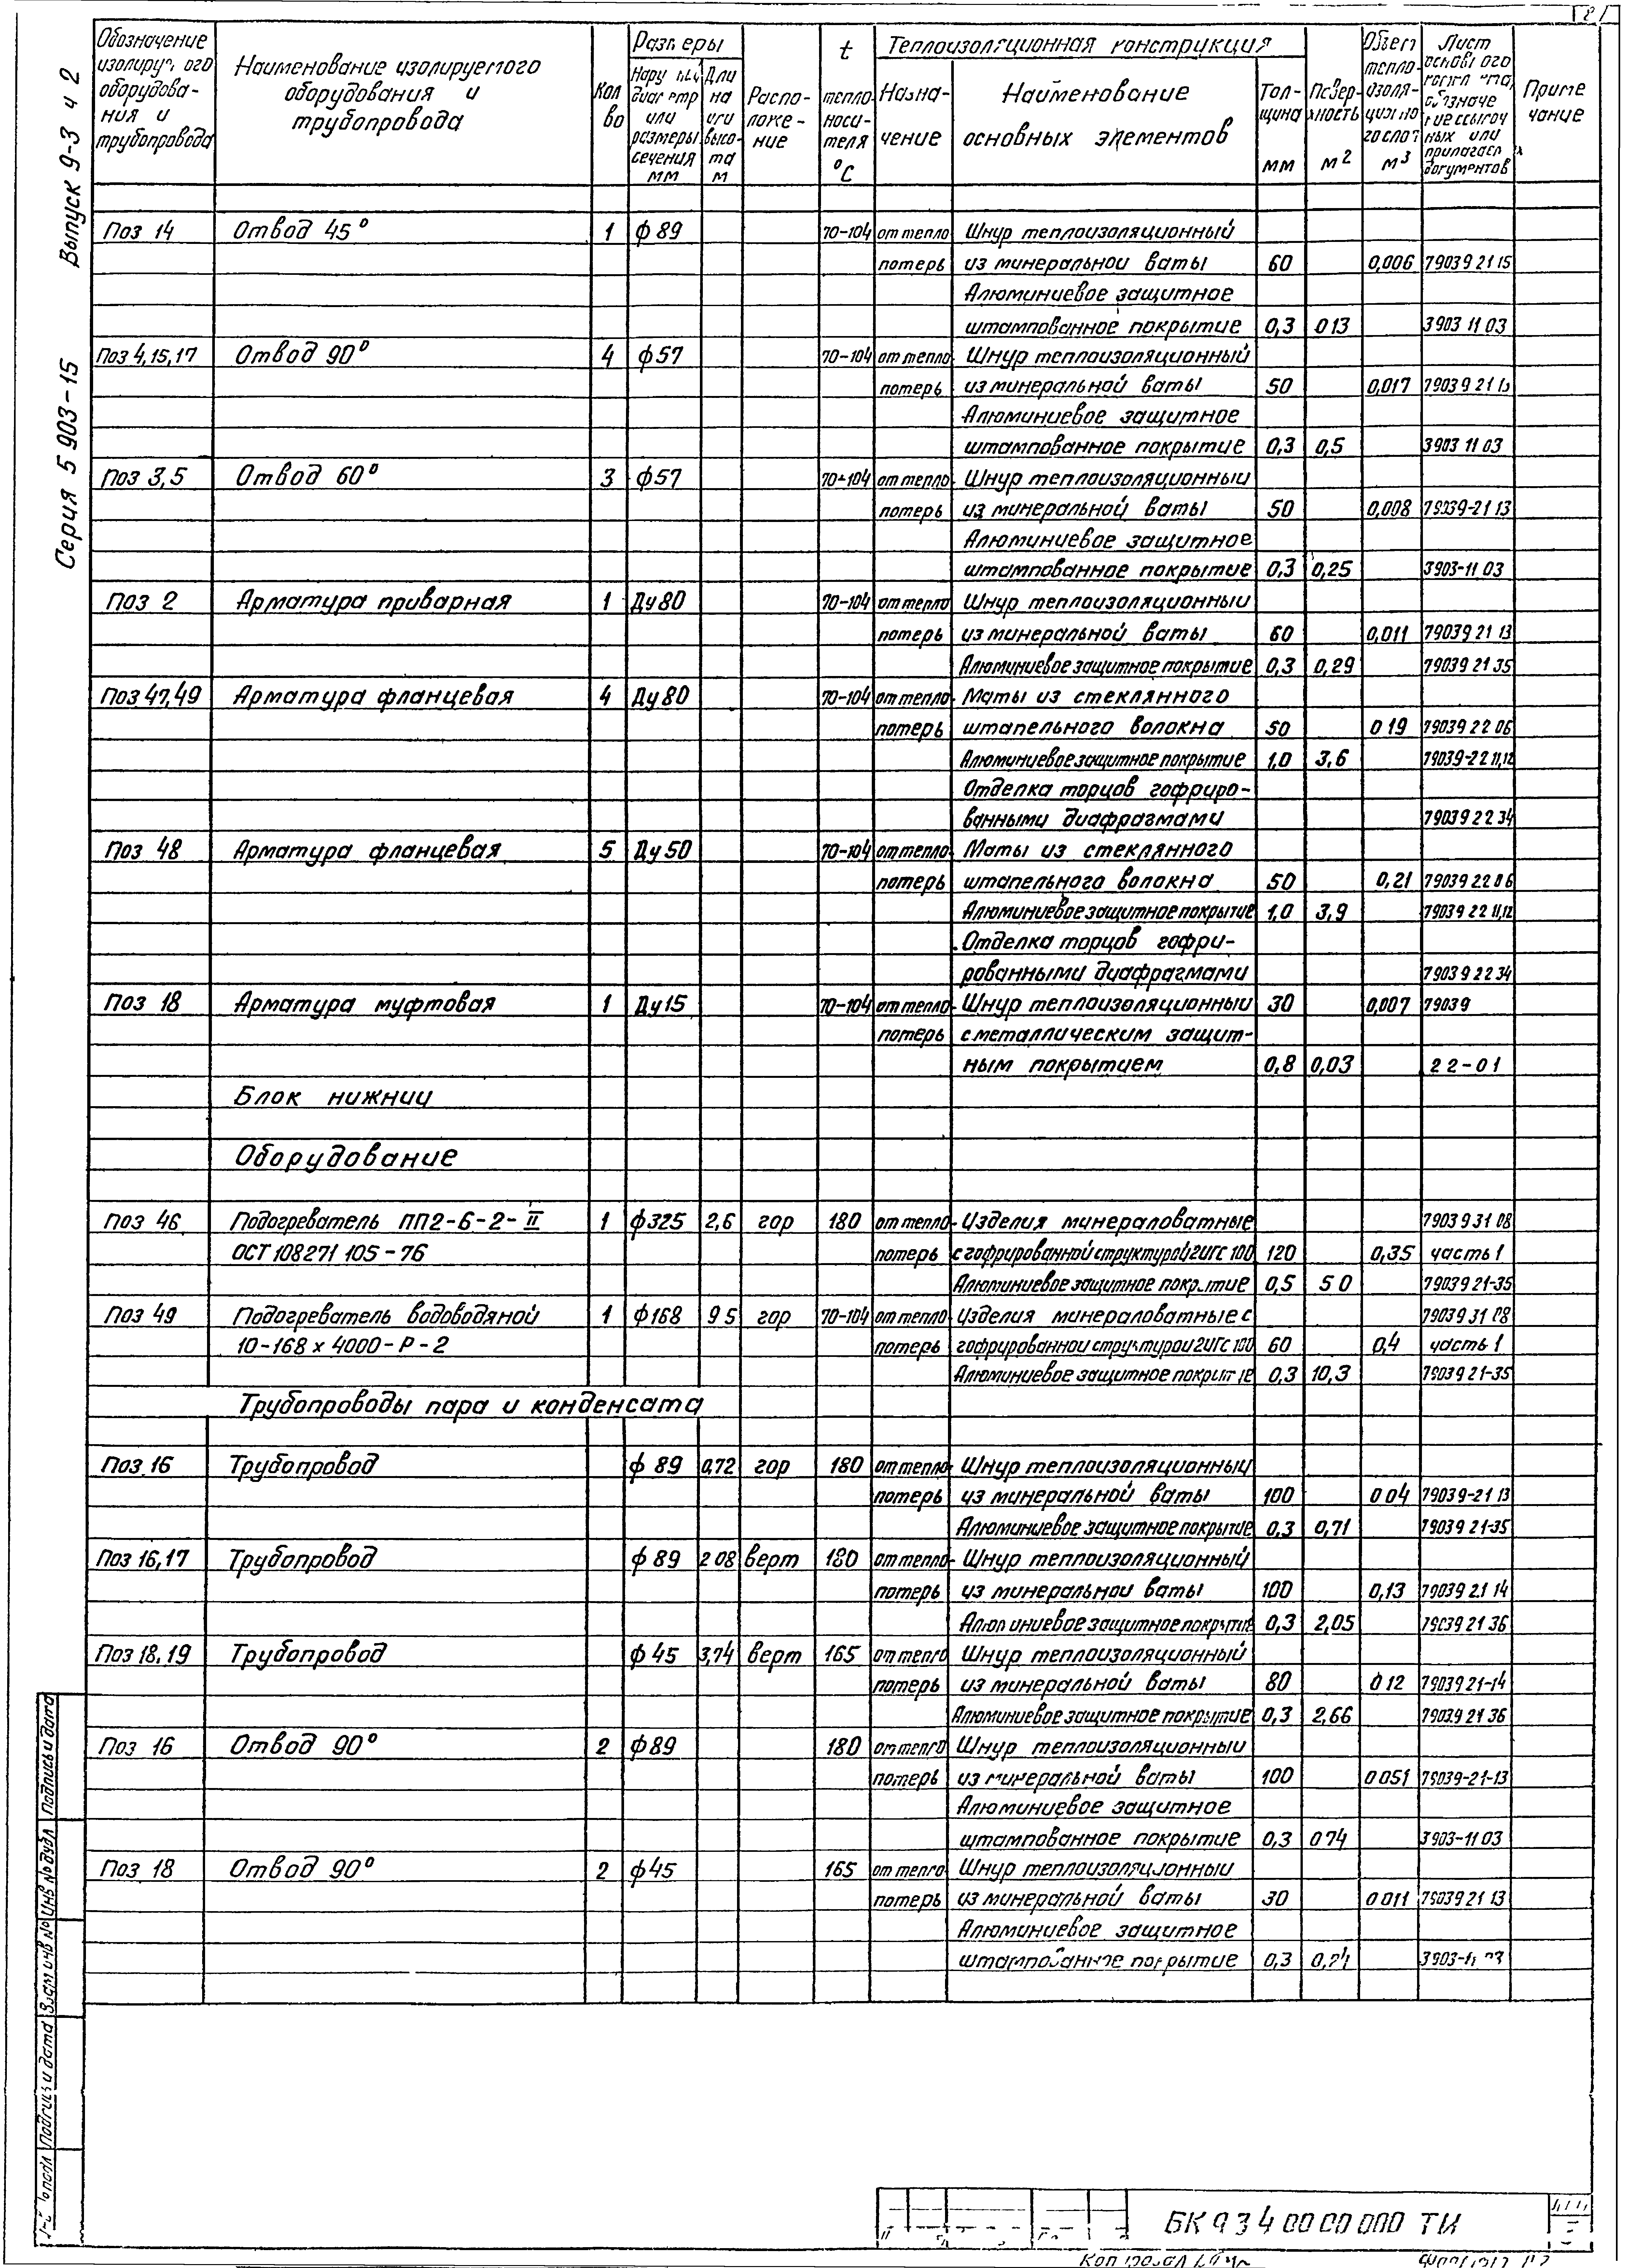 Серия 5 903-15 Выпуск 9-3 ч 2
Обозначение оборудования и трубопровода
Наименование изолируемого оборудования и трубопровода
Кол во
Размеры
диаметр или размеры сечения мм
Длина или высота м
Расположение
t теплоносителя °С
Теплоизоляционная конструкция
Назначение
Наименование основных элементов
Толщина мм
Поверхность м2
Объем теплоизоляционного слоя м3
Лист
документов
Примечание
Поз 14 Отвод 45° 1 ф 89 70-104 от тепло Шнур теплоизоляционный
потерь из минеральной ваты 60 0,006 79039 21 15
Алюминиевое защитное
штампованное покрытие 0,3 013 3 903 11 03
Поз 4,15,17 Отвод 90° 4 ф57 70-104 от тепло Шнур теплоизоляционный
потерь из минеральной ваты 50 0,017 79039 21
Алюминиевое защитное
штампованное покрытие 0,3 0,5 3 903 11 03
Поз 3,5 Отвод 60° 3 ф57 70-104 от тепло- Шнур теплоизоляционный
потерь из минеральной ваты 50 0,008 79039-21 13
Алюминиевое защитное
штампованное покрытие 0,3 0,25 3 903-11 03
Поз 2 Арматура приварная 1 Ду80 70-104 от тепло Шнур теплоизоляционный
потерь из минеральной ваты 60 0,011 79039 21 13
Алюминиевое защитное покрытие 0,3 0,29 79039 21 35
Поз 47,49 Арматура фланцевая 4 Ду80 70-104 от тепло- Маты из стеклянного
потерь штапельного волокна 50 0 19 79039 22 06
Алюминиевое защитное покрытие 1,0 3,6 79039-22 11,12
Отделка торцов гофриро-
ванными диафрагмами 79039 22 34
Поз 48 Арматура фланцевая 5 Ду50 70-104 от тепло- Маты из стеклянного
потерь штапельного волокна 50 0,21 79039 22 06
Алюминиевое защитное покрытие 1,0 3,9 79039 22 11,12
Отделка торцов гофри-
рованными диафрагмами 7903 9 22 34
Поз 18 Арматура муфтовая 1 Ду15 70-104 от тепло- Шнур теплоизоляционный 30 0,007 79039
потерь с металлическим защит-
ным покрытием 0,8 0,03 22-01
Блок нижний
Оборудование
Поз 46 Подогреватель ПП2-6-2-II 1 ф325 2,6 гор 180 от тепло- Изделия минераловатные 7903 9 31 08
ОСТ 108271 105-76 потерь с гофрированной структурой 2ИГС 100 120 0,35 часть 1
Алюминиевое защитное покрытие 0,5 5 0 79039 21-35
Поз 49 Подогреватель водоводяной 1 ф168 9 5 гор 70-104 от тепло Изделия минераловатные с 79039 31 08
10-168 х 4000-Р-2 потерь гофрированной структурой 2ИГС 100 60 0,4 часть 1
Алюминиевое защитное покрытие 0,3 10,3 79039 21-35
Трубопроводы пара и конденсата
Поз 16 Трубопровод ф 89 0,72 гор 180 от тепло- Шнур теплоизоляционный
потерь из минеральной ваты 100 0 04 79039-21 13
Алюминиевое защитное покрытие 0,3 0,71 79039 21-35
Поз 16,17 Трубопровод ф 89 2 08 верт 180 от тепло- Шнур теплоизоляционный
потерь из минеральной ваты 100 0,13 79039 21 14
Алюминиевое защитное покрытие 0,3 2,05 79039 21 36
Поз 18,19 Трубопровод ф 45 3,74 верт 165 от тепло Шнур теплоизоляционный
потерь из минеральной ваты 80 0 12 79039 21-14
Алюминиевое защитное покрытие 0,3 2,66 79039 21 36
Поз 16 Отвод 90° 2 ф89 180 от тепло Шнур теплоизоляционный
потерь из минеральной ваты 100 0 051 79039-21-13
Алюминиевое защитное
штампованное покрытие 0,3 0 74 3 903-11 03
Поз 18 Отвод 90° 2 ф45 165 от тепло- Шнур теплоизоляционный
потерь из минеральной ваты 30 0 011 79039 21 13
Алюминиевое защитное
штампованное покрытие 0,3
Подпись и дата
Инв № дубл
Взам инв №
Подпись и дата
БК 9 3 4 00 00 000 ТИ